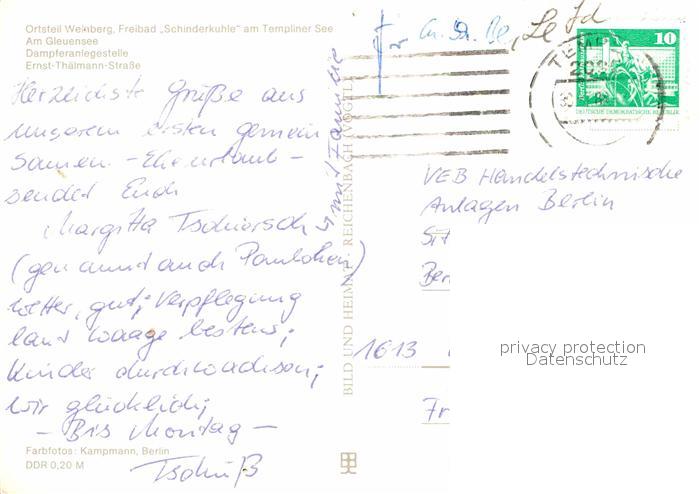 Ortsteil Weinberg, Freibad „Schinderkuhle" am Templiner See
Am Gleuensee
Dampferanlegestelle
Ernst-Thälmann-Straße
Herzlichste Grüße aus
unserem ersten gemein
samen - Eheurlaub -
sendet Euch
Margitta Tschiersch
mit Familie
(genannt auch
Wetter, gut; Verpflegung
laut Waage bestens;
Kinder durchwachsen;
wir glücklich;
- Bis Montag -
Tschüß
Farbfotos: Kampmann, Berlin
DDR 0,20 M
BILD UND HEIMAT REICHENBACH (VOGTL)
10
DEUTSCHE DEMOKRATISCHE REPUBLIK
VEB Handelstechnische
Anlagen Berlin
1613
privacy protection
Datenschutz